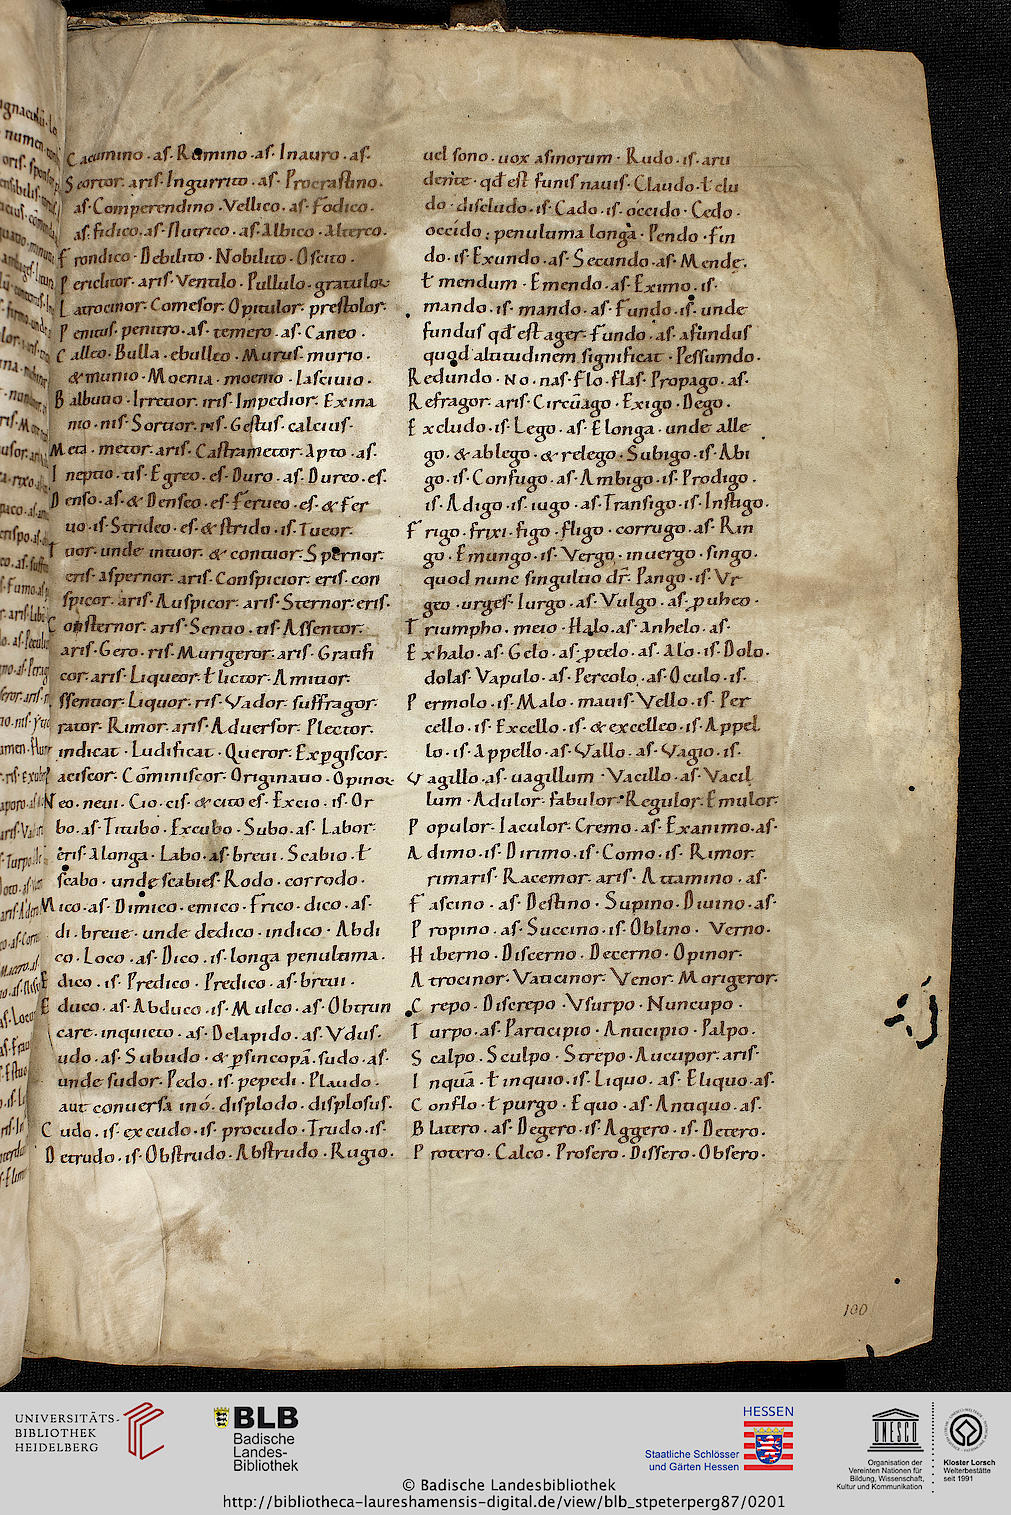 Cacumino · as · Rumino · as · Inauro · as ·
Scortor · aris · Ingurrito · as · Procrastino ·
as · Comperendino · Vellico · as · Fodico ·
as · fidico · as · Nutrico · as · Albico · Alterco ·
Frondico · Debilito · Nobilito · Oscito ·
Periclitor · aris · Ventilo · Pullulo · gratulor
Latrocinor · Comesor · Opitulor · prestolor ·
Penitus · penitro · as · temero · as · Caneo ·
Calleo · Bulla · ebulleo · Murus · murio ·
& munio · Moenia · moenio · lasciuio ·
Balbutio · Irretior · iris · Impedior · Exina
nio · nis · Sortior · ris · Gestus · calcius ·
Meta · metor · aris · Castrametor · Apto · as ·
Ineptio · tis · Egreo · es · Duro · as · Dureo · es ·
Denso · as · & Denseo · es · ferueo · es · & fer
uo · is · Strideo · es · & strido · is · Tueor ·
Tuor · unde intuor · & contuor · Spernor ·
eris · aspernor · aris · Conspicior · eris · con
spicor · aris · Auspicor · aris · Sternor · eris ·
Consternor · aris · Sentio · tis · Assentior ·
aris · Gero · ris · Murigeror · aris · Gratifi
cor · aris · Liqueor · ł lictor · Amitior ·
ssentior · Liquor · ris · Vador · suffragor ·
rator · Rimor · aris · Aduersor · Plector ·
indicat · Ludificat · Queror · Expgiscor ·
aciscor · Cōminiscor · Originatio · Opinor
Neo · neui · Cio · cis · & cito es · Excio · is · Or
bo · as · Titubo · Excubo · Subo · as · Labor ·
eris · Alonga · Labo · as · breui · Scabio · ł
scabo · unde scabies · Rodo · corrodo ·
Mico · as · Dimico · emico · Frico · dico · as ·
di · breue · unde dedico · indico · Abdi
co · Loco · as · Dico · is · longa penultima ·
Edico · is · Predico · Predico · as · breui ·
Educo · as · Abduco · is · Mulco · as · Obtrun
care · inquieto · as · Delapido · as · Vdus ·
udo · as · Subudo · & psincopā · sudo · as ·
unde sudor · Pedo · is · pepedi · Plaudo ·
aut conuersa inó · displodo · displosus ·
Cudo · is · excudo · is · procudo · Trudo · is ·
Detrudo · is · Obstrudo · Abstrudo · Rugio ·
uel sono · uox asinorum · Rudo · is · aru
dente · qđ est funis nauis · Claudo · ł clu
do · discludo · is · Cado · is · occido · Cedo ·
occido ; penultima longa · Pendo · Fin
do · is · Exundo · as · Secundo · as · Mende ·
ł mendum · Emendo · as · Eximo · is ·
mando · is · mando · as · Fundo · is · unde
fundus qđ est ager · fundo · as · afundus
quod altitudinem significat · Pessumdo ·
Redundo · No · nas · flo · flas · Propago · as ·
Refragor · aris · Circūago · Exigo · Dego ·
Excludo · is · Lego · as · Elonga · unde alle
go · & ablego · & relego · Subigo · is · Abi
go · is · Confugo · as · Ambigo · is · Prodigo ·
is · Adigo · is · iugo · as · Transigo · is · Instigo ·
Frigo · frixi · figo · fligo · corrugo · as · Rin
go · Emungo · is · Vergo · inuergo · singo ·
quod nunc singultio dr̄ · Pango · is · Vr
geo · urges · Iurgo · as · Vulgo · as · pueho ·
Triumpho · meio · Halo · as · Anhelo · as ·
Exhalo · as · Gelo · as · ptelo · as · Alo · is · Dolo ·
dolas · Vapulo · as · Percolo · as · Oculo · is ·
Permolo · is · Malo · mauis · Vello · is · Per
cello · is · Excello · is · & excelleo · is · Appel
lo · is · Appello · as · Vallo · as · Vagio · is ·
Vagillo · as · uagillum · Vacillo · as · Vacil
lum · Adulor · fabulor · Regulor · Emulor ·
Populor · Iaculor · Cremo · as · Exanimo · as ·
Adimo · is · Dirimo · is · Como · is · Rimor ·
rimaris · Racemor · aris · Attamino · as ·
Fascino · as · Destino · Supino · Diuino · as ·
Propino · as · Succino · is · Oblino · Verno ·
Hiberno · Discerno · Decerno · Opinor ·
Atrocinor · Vaticinor · Venor · Morigeror ·
Crepo · Discrepo · Vsurpo · Nuncupo ·
Turpo · as · Participio · Anticipio · Palpo ·
Scalpo · Sculpo · Strepo · Aucupor · aris ·
Inquā · ł inquio · is · Liquo · as · Eliquo · as ·
Conflo · ł purgo · Equo · as · Antiquo · as ·
Blatero · as · Degero · is · Aggero · is · Detero ·
Protero · Calco · Prosero · Dissero · Obsero ·
100
UNIVERSITÄTS-
BIBLIOTHEK
HEIDELBERG
BLB
Badische
Landes-
Bibliothek
HESSEN
Staatliche Schlösser
und Gärten Hessen
UNESCO
Organisation der
Vereinten Nationen für
Bildung, Wissenschaft,
Kultur und Kommunikation
Kloster Lorsch
Welterbestätte
seit 1991
© Badische Landesbibliothek
http://bibliotheca-laureshamensis-digital.de/view/blb_stpeterperg87/0201